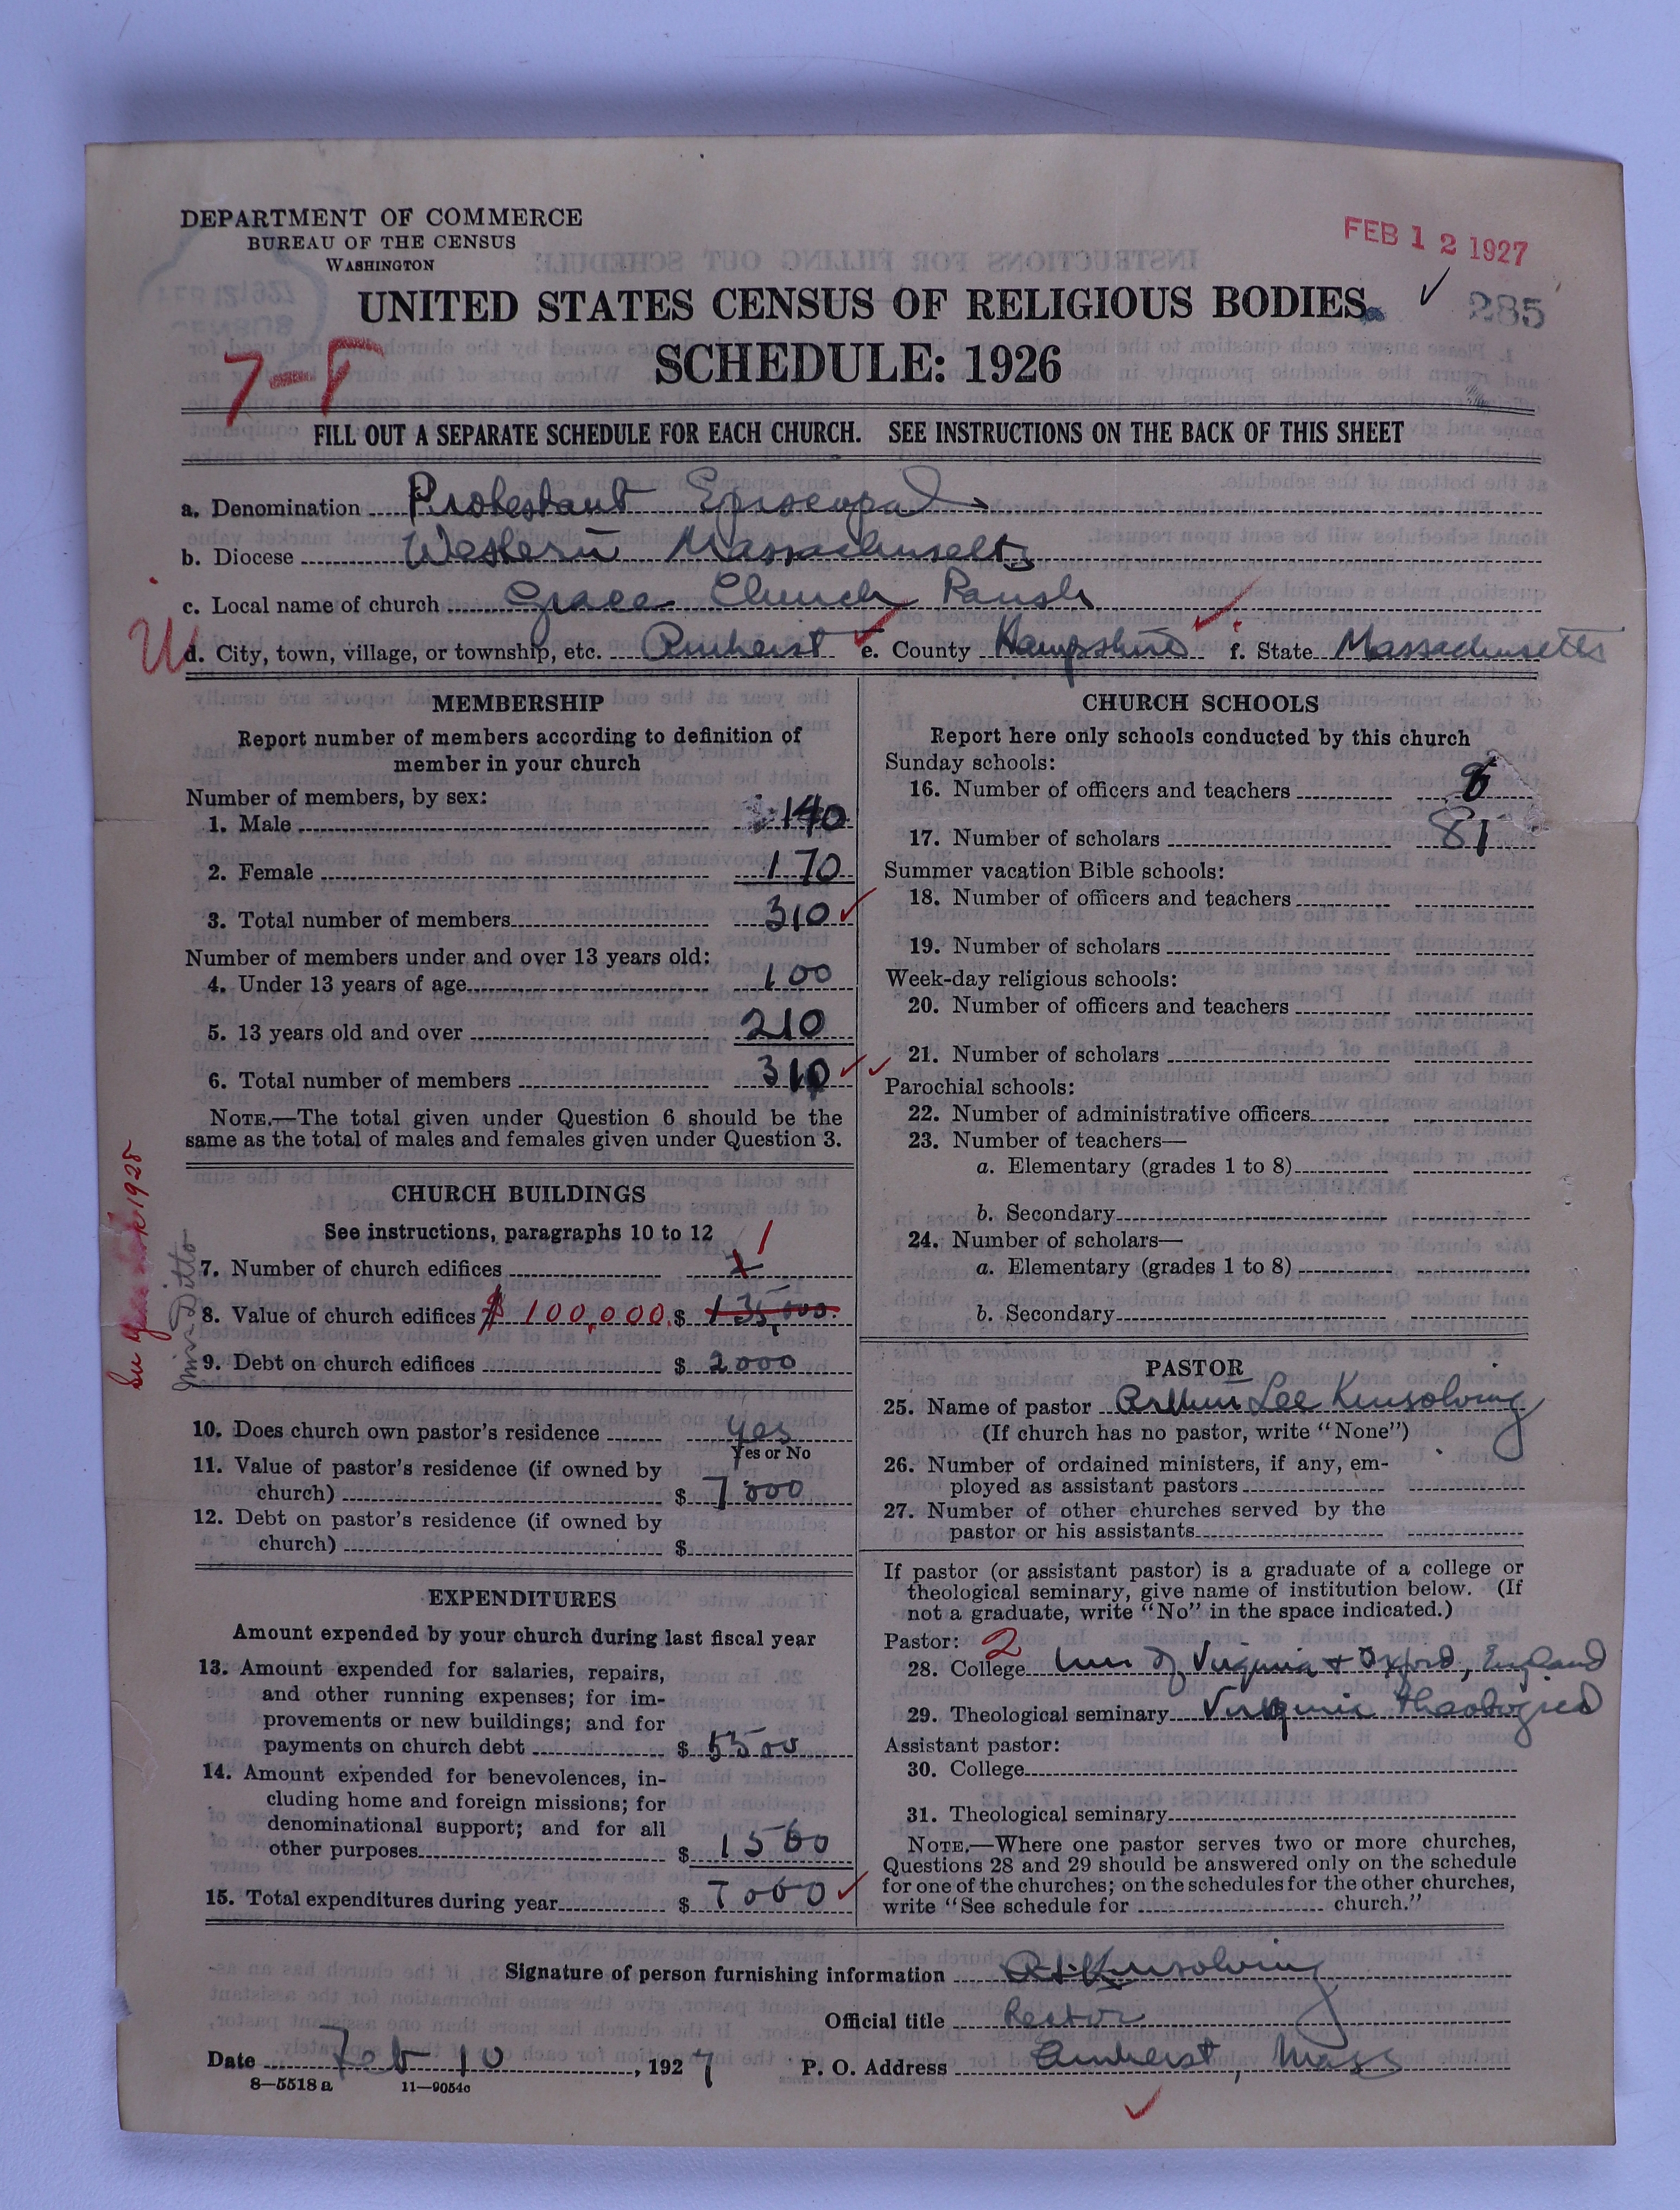 DEPARTMENT OF COMMERCE
BUREAU OF THE CENSUS
WASHINGTON
FEB 12 1927
285
UNITED STATES CENSUS OF RELIGIOUS BODIES
SCHEDULE: 1926
FILL OUT A SEPARATE SCHEDULE FOR EACH CHURCH. SEE INSTRUCTIONS ON THE BACK OF THIS SHEET
a. Denomination Protestant Episcopal
b. Diocese Western Massachusetts
c. Local name of church Grace Church Parish
d. City, town, village, or township, etc. Amherst e. County Hampshire f. State Massachusetts
MEMBERSHIP
Report number of members according to definition of
member in your church
Number of members, by sex:
1. Male 140
2. Female 170
3. Total number of members 310
Number of members under and over 13 years old:
4. Under 13 years of age 100
5. 13 years old and over 210
6. Total number of members 310
NOTE.—The total given under Question 6 should be the
same as the total of males and females given under Question 3.
CHURCH BUILDINGS
See instructions, paragraphs 10 to 12
7. Number of church edifices 1
8. Value of church edifices $ 100,000. $ 135,000.
9. Debt on church edifices $ 2000
10. Does church own pastor's residence yes
Yes or No
11. Value of pastor's residence (if owned by
church) $ 7000
12. Debt on pastor's residence (if owned by
church) $
EXPENDITURES
Amount expended by your church during last fiscal year
13. Amount expended for salaries, repairs,
and other running expenses; for im-
provements or new buildings; and for
payments on church debt $ 5500
14. Amount expended for benevolences, in-
cluding home and foreign missions; for
denominational support; and for all
other purposes $ 1500
15. Total expenditures during year $ 7000
CHURCH SCHOOLS
Report here only schools conducted by this church
Sunday schools:
16. Number of officers and teachers
17. Number of scholars 81
Summer vacation Bible schools:
18. Number of officers and teachers
19. Number of scholars
Week-day religious schools:
20. Number of officers and teachers
21. Number of scholars
Parochial schools:
22. Number of administrative officers
23. Number of teachers—
a. Elementary (grades 1 to 8)
b. Secondary
24. Number of scholars—
a. Elementary (grades 1 to 8)
b. Secondary
PASTOR
25. Name of pastor Arthur Lee Kinsolving
(If church has no pastor, write "None")
26. Number of ordained ministers, if any, em-
ployed as assistant pastors
27. Number of other churches served by the
pastor or his assistants
If pastor (or assistant pastor) is a graduate of a college or
theological seminary, give name of institution below. (If
not a graduate, write "No" in the space indicated.)
Pastor: 2
28. College Univ of Virginia + Oxford, England
29. Theological seminary Virginia Theological
Assistant pastor:
30. College
31. Theological seminary
NOTE.—Where one pastor serves two or more churches,
Questions 28 and 29 should be answered only on the schedule
for one of the churches; on the schedules for the other churches,
write "See schedule for church."
Signature of person furnishing information A. L. Kinsolving
Official title Rector
Date Feb 10, 1927 P. O. Address Amherst, Mass
8—5518 a 11—9054c